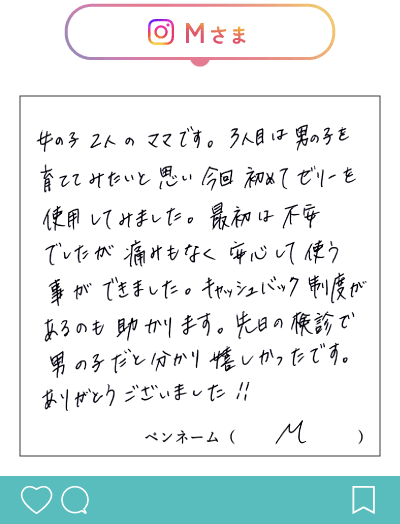 Mさま
女の子2人のママです。3人目は男の子を
育ててみたいと思い今回初めてゼリーを
使用してみました。最初は不安
でしたが痛みもなく安心して使う
事ができました。キャッシュバック制度が
あるのも助かります。先日の検診で
男の子だと分かり嬉しかったです。
ありがとうございました!!
ペンネーム( M )